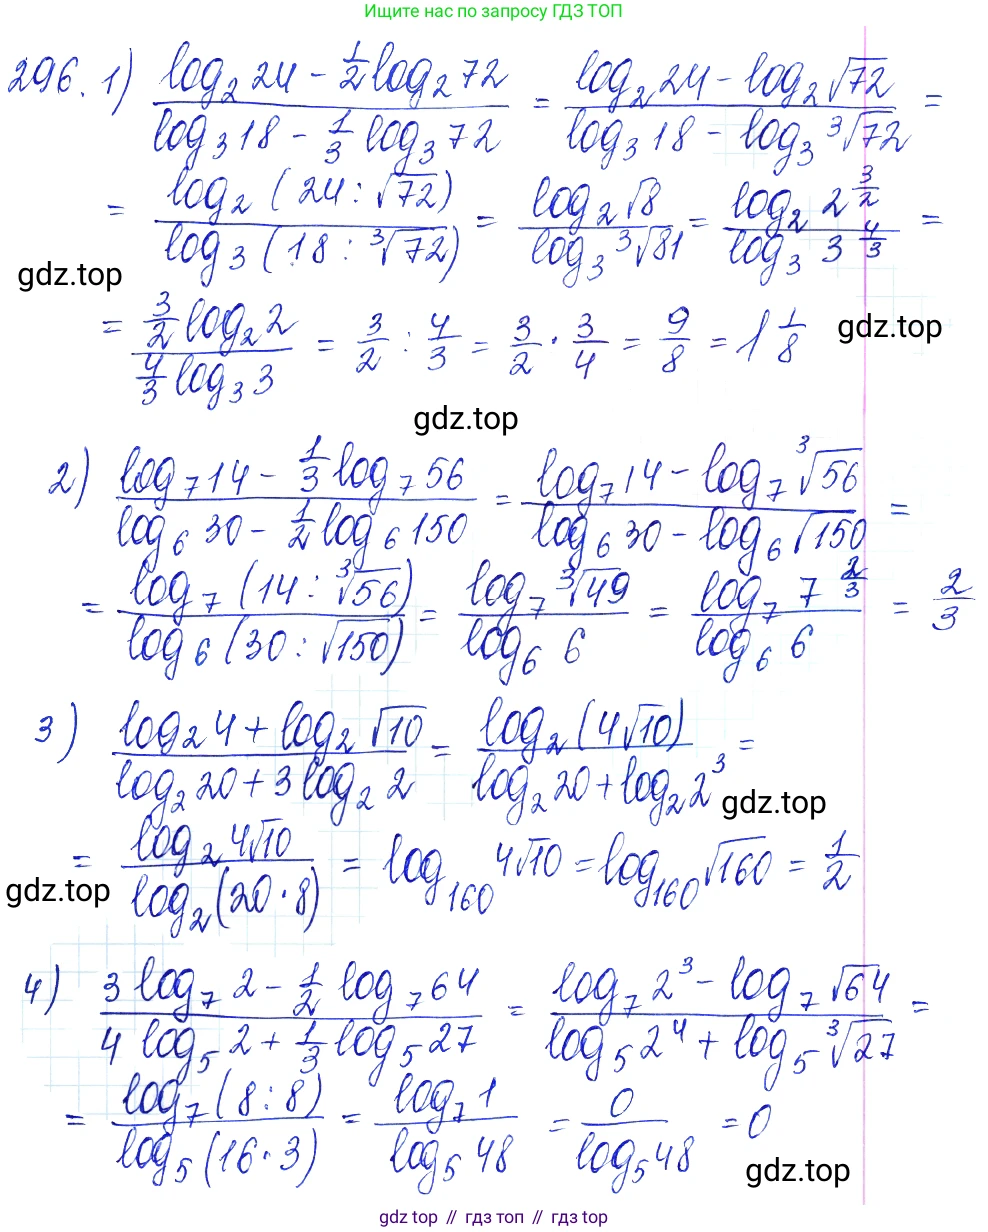 Ищите нас по запросу ГДЗ ТОП
296. 1) (log₂ 24 − 1/2 log₂ 72)/(log₃ 18 − 1/3 log₃ 72) = (log₂ 24 − log₂ √72)/(log₃ 18 − log₃ ³√72) =
= (log₂ (24 : √72))/(log₃ (18 : ³√72)) = (log₂ √8)/(log₃ ³√81) = (log₂ 2^(3/2))/(log₃ 3^(4/3)) =
gdz.top
= (3/2 log₂ 2)/(4/3 log₃ 3) = 3/2 : 4/3 = 3/2 · 3/4 = 9/8 = 1 1/8
gdz.top
gdz.top
2) (log₇ 14 − 1/3 log₇ 56)/(log₆ 30 − 1/2 log₆ 150) = (log₇ 14 − log₇ ³√56)/(log₆ 30 − log₆ √150) =
= (log₇ (14 : ³√56))/(log₆ (30 : √150)) = (log₇ ³√49)/(log₆ 6) = (log₇ 7^(2/3))/(log₆ 6) = 2/3
3) (log₂ 4 + log₂ √10)/(log₂ 20 + 3 log₂ 2) = (log₂ (4√10))/(log₂ 20 + log₂ 2³) =
gdz.top
= (log₂ 4√10)/(log₂ (20 · 8)) = log₁₆₀ 4√10 = log₁₆₀ √160 = 1/2
gdz.top
4) (3 log₇ 2 − 1/2 log₇ 64)/(4 log₅ 2 + 1/3 log₅ 27) = (log₇ 2³ − log₇ √64)/(log₅ 2⁴ + log₅ ³√27) =
= (log₇ (8 : 8))/(log₅ (16 · 3)) = (log₇ 1)/(log₅ 48) = 0/(log₅ 48) = 0
gdz.top
gdz top // гдз топ // gdz top